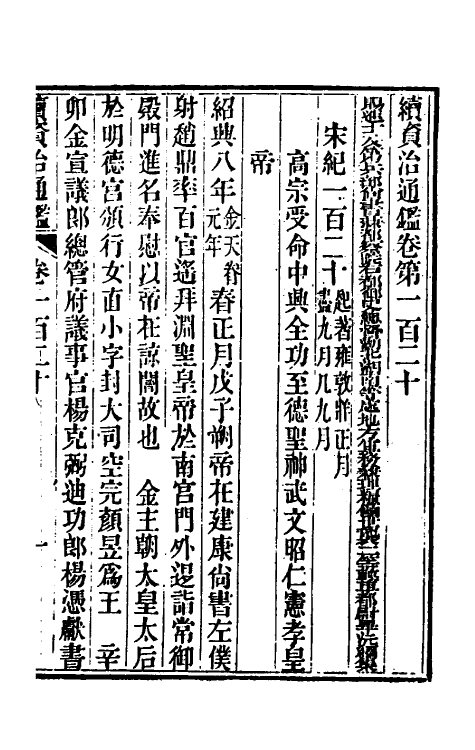 續資治通鑑卷第一百二十
宋紀一百二十起著雍敦牂正月盡九月凡九月
高宗受命中興全功至德聖神武文昭仁憲孝皇
帝
紹興八年金天眷元年春正月戊子朔帝在建康尚書左僕
射趙鼎率百官遙拜淵聖皇帝於南宮門外退詣常御
殿門進名奉慰以帝在諒闇故也　金王朝太皇太后
於明德宮頒行女直小字封大司空完顏昱爲王　辛
卯金宣議郎總管府議事官楊克弼迪功郎楊憑獻書
續資治通鑑　卷一百二十　一